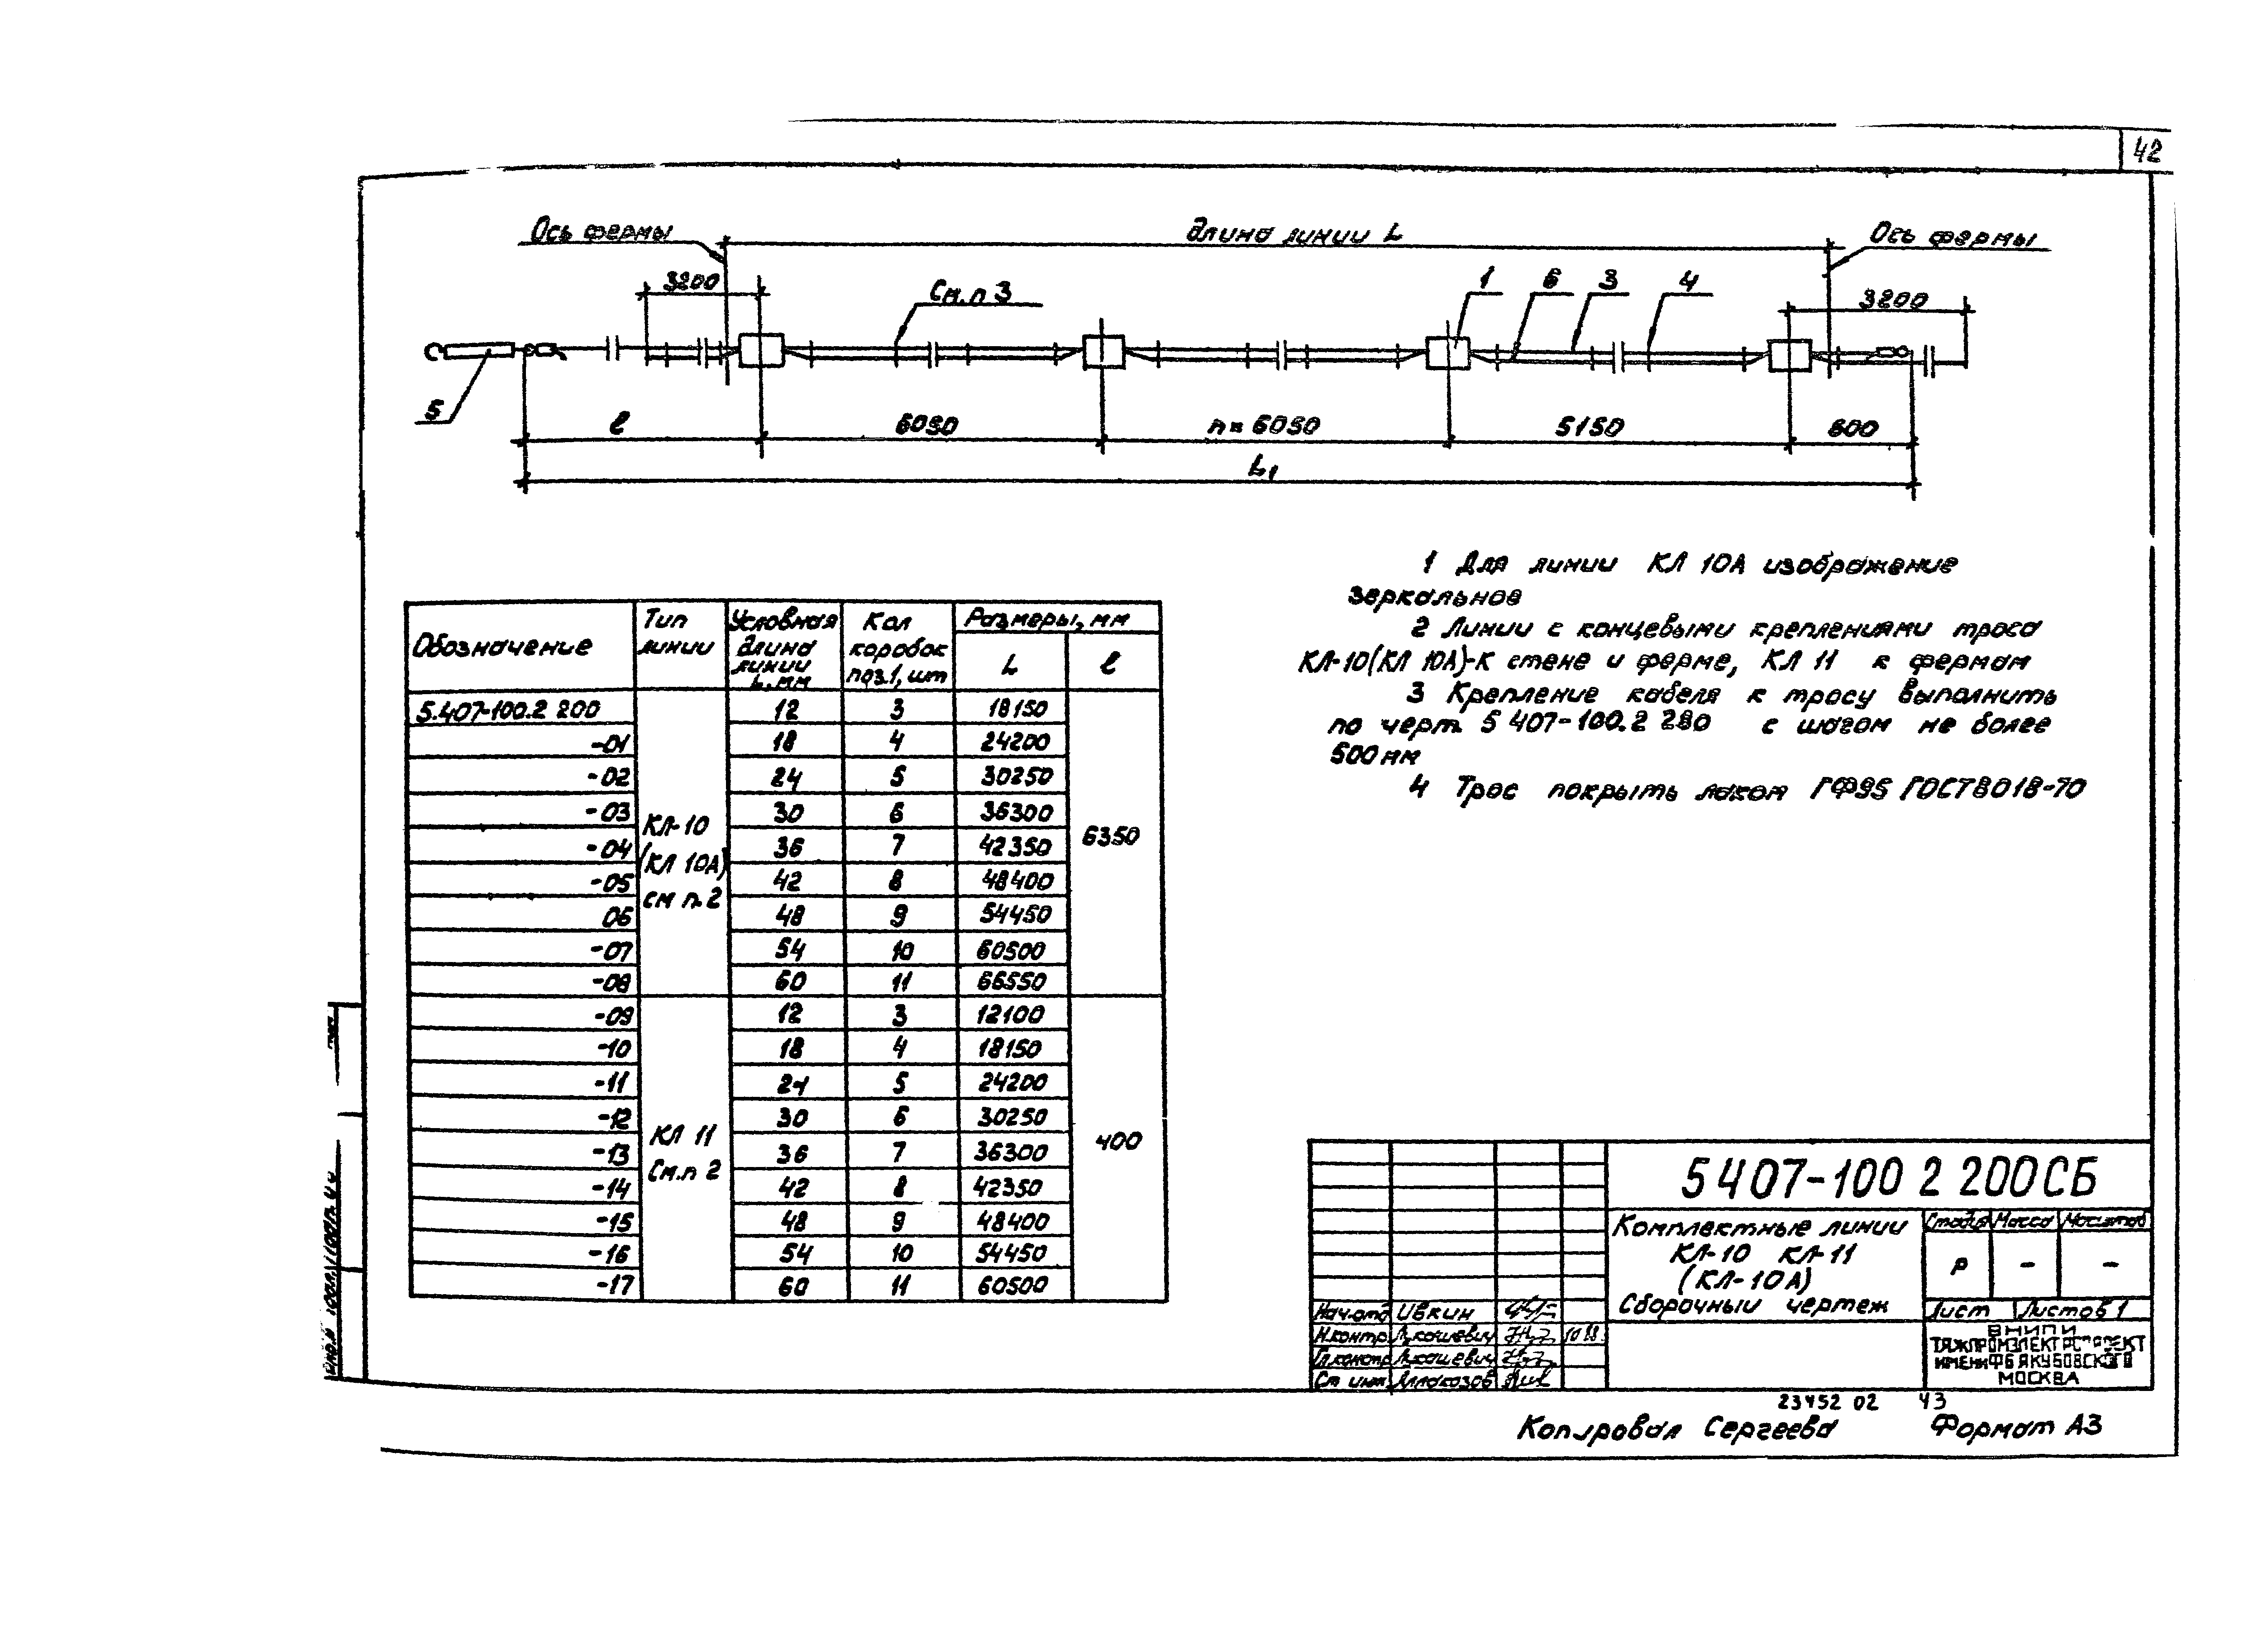 42
Ось фермы
Длина линии L
Ось фермы
3200
См. п 3
1
6
3
4
3200
5
ℓ
6050
n × 6050
5150
600
L₁
1 Для линии КЛ 10А изображение
зеркальное
2 Линии с концевыми креплениями троса
КЛ-10(КЛ 10А)-к стене и ферме, КЛ 11 к фермам
3 Крепление кабеля к тросу выполнить
по черт. 5 407-100.2 280 с шагом не более
500 мм
4 Трос покрыть лаком ГФ95 ГОСТ8018-70
Обозначение
Тип линии
Условная длина линии L, мм
Кол коробок поз.1, шт
Размеры, мм
L
ℓ
5.407-100.2 200 12 3 18150
-01 18 4 24200
-02 24 5 30250
-03 30 6 36300
-04 36 7 42350
-05 42 8 48400
06 48 9 54450
-07 54 10 60500
-08 60 11 66550
КЛ-10
(КЛ 10А)
см п. 2
6350
-09 12 3 12100
-10 18 4 18150
-11 24 5 24200
-12 30 6 30250
-13 36 7 36300
-14 42 8 42350
-15 48 9 48400
-16 54 10 54450
-17 60 11 60500
КЛ 11
См. п 2
400
5 407-100 2 200СБ
Комплектные линии
КЛ-10 КЛ-11
(КЛ-10А)
Сборочный чертеж
Стадия Масса Масштаб
Р - -
Лист Листов 1
Нач.отд Ивкин
Н.контр Лукашевич 10 88
Гл.констр Лукашевич
Ст инж
ВНИПИ
ТЯЖПРОМЭЛЕКТРОПРОЕКТ
ИМЕНИ Ф Б ЯКУБОВСКОГО
МОСКВА
23452 02 43
Копировал Сергеева Формат А3